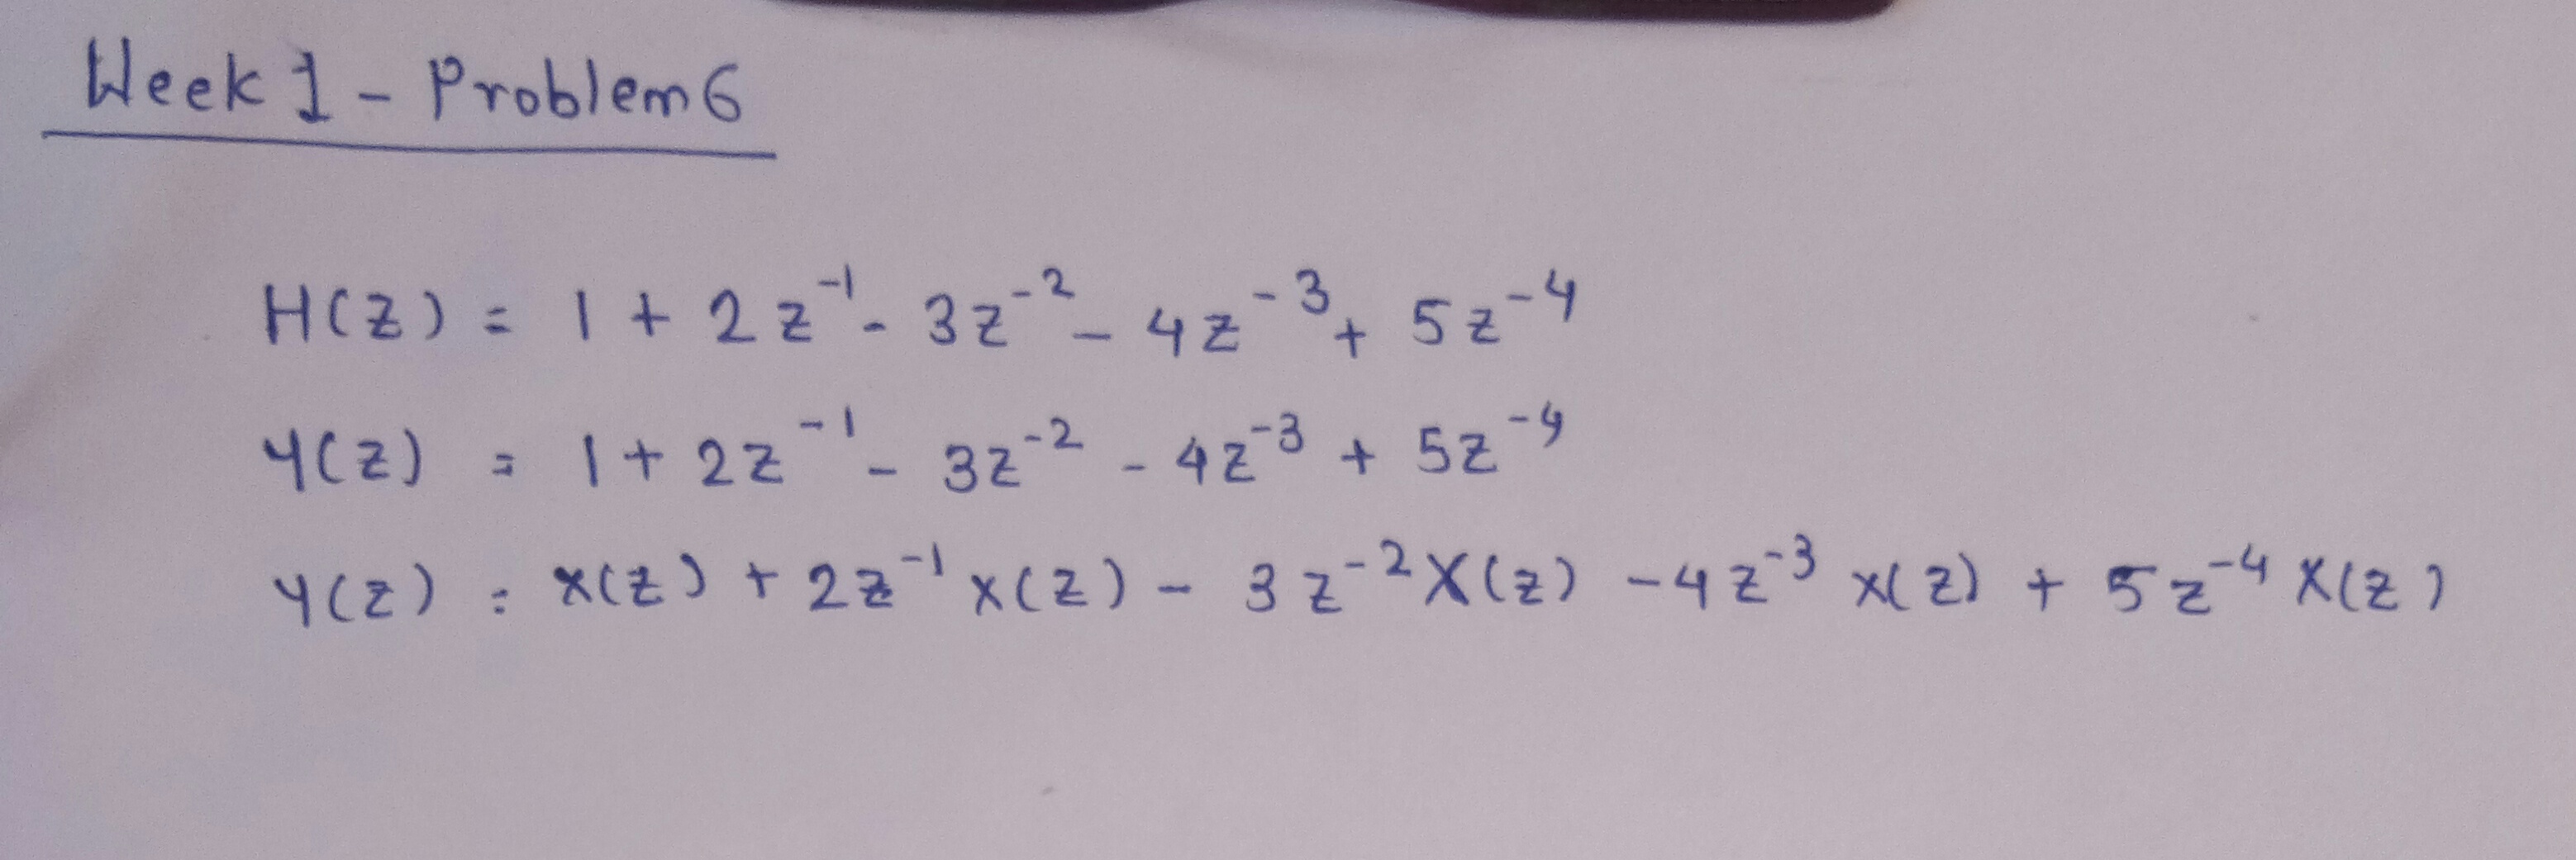 Week 1 - Problem 6
H(z) = 1 + 2z⁻¹ - 3z⁻² - 4z⁻³ + 5z⁻⁴
Y(z) = 1 + 2z⁻¹ - 3z⁻² - 4z⁻³ + 5z⁻⁴
Y(z) = X(z) + 2z⁻¹ X(z) - 3z⁻² X(z) - 4z⁻³ X(z) + 5z⁻⁴ X(z)